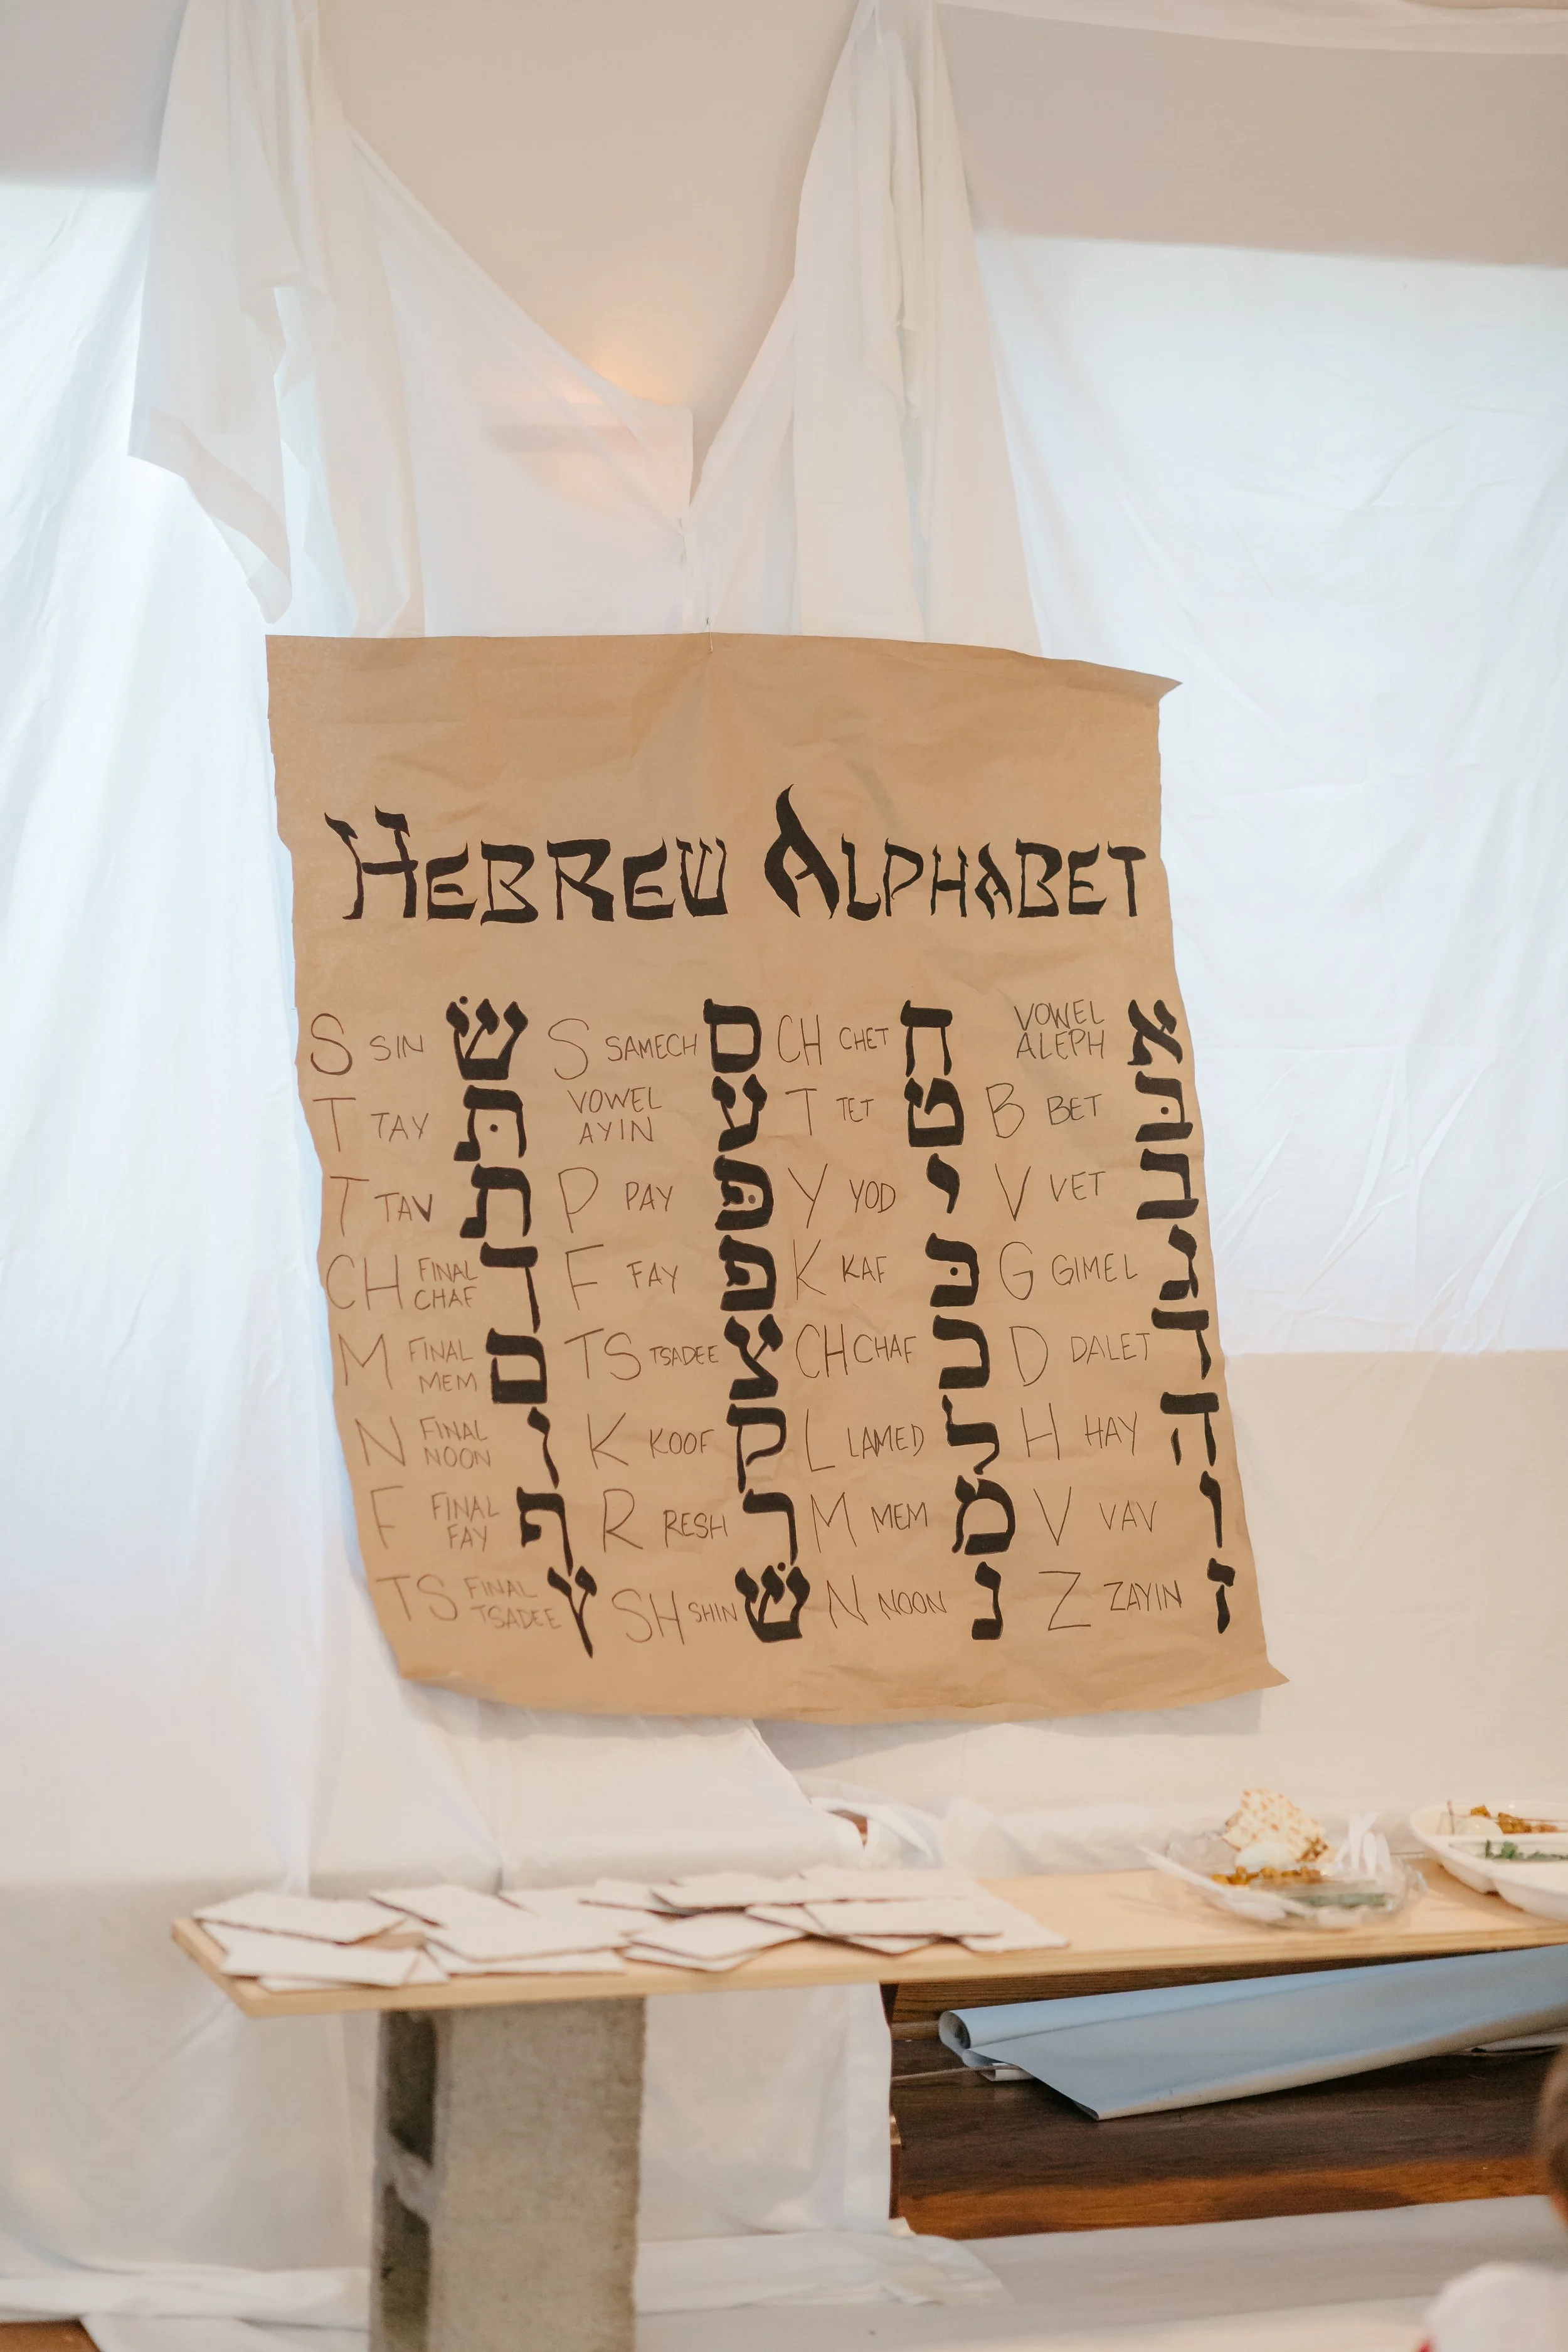 HEBREW ALPHABET
S SIN שׂ S SAMECH ס CH CHET ח VOWEL ALEPH א
T TAY תּ VOWEL AYIN ע T TET ט B BET בּ
T TAV ת P PAY פּ Y YOD י V VET ב
CH FINAL CHAF ך F FAY פ K KAF כּ G GIMEL ג
M FINAL MEM ם TS TSADEE צ CH CHAF כ D DALET ד
N FINAL NOON ן K KOOF ק L LAMED ל H HAY ה
F FINAL FAY ף R RESH ר M MEM מ V VAV ו
TS FINAL TSADEE ץ SH SHIN שׁ N NOON נ Z ZAYIN ז